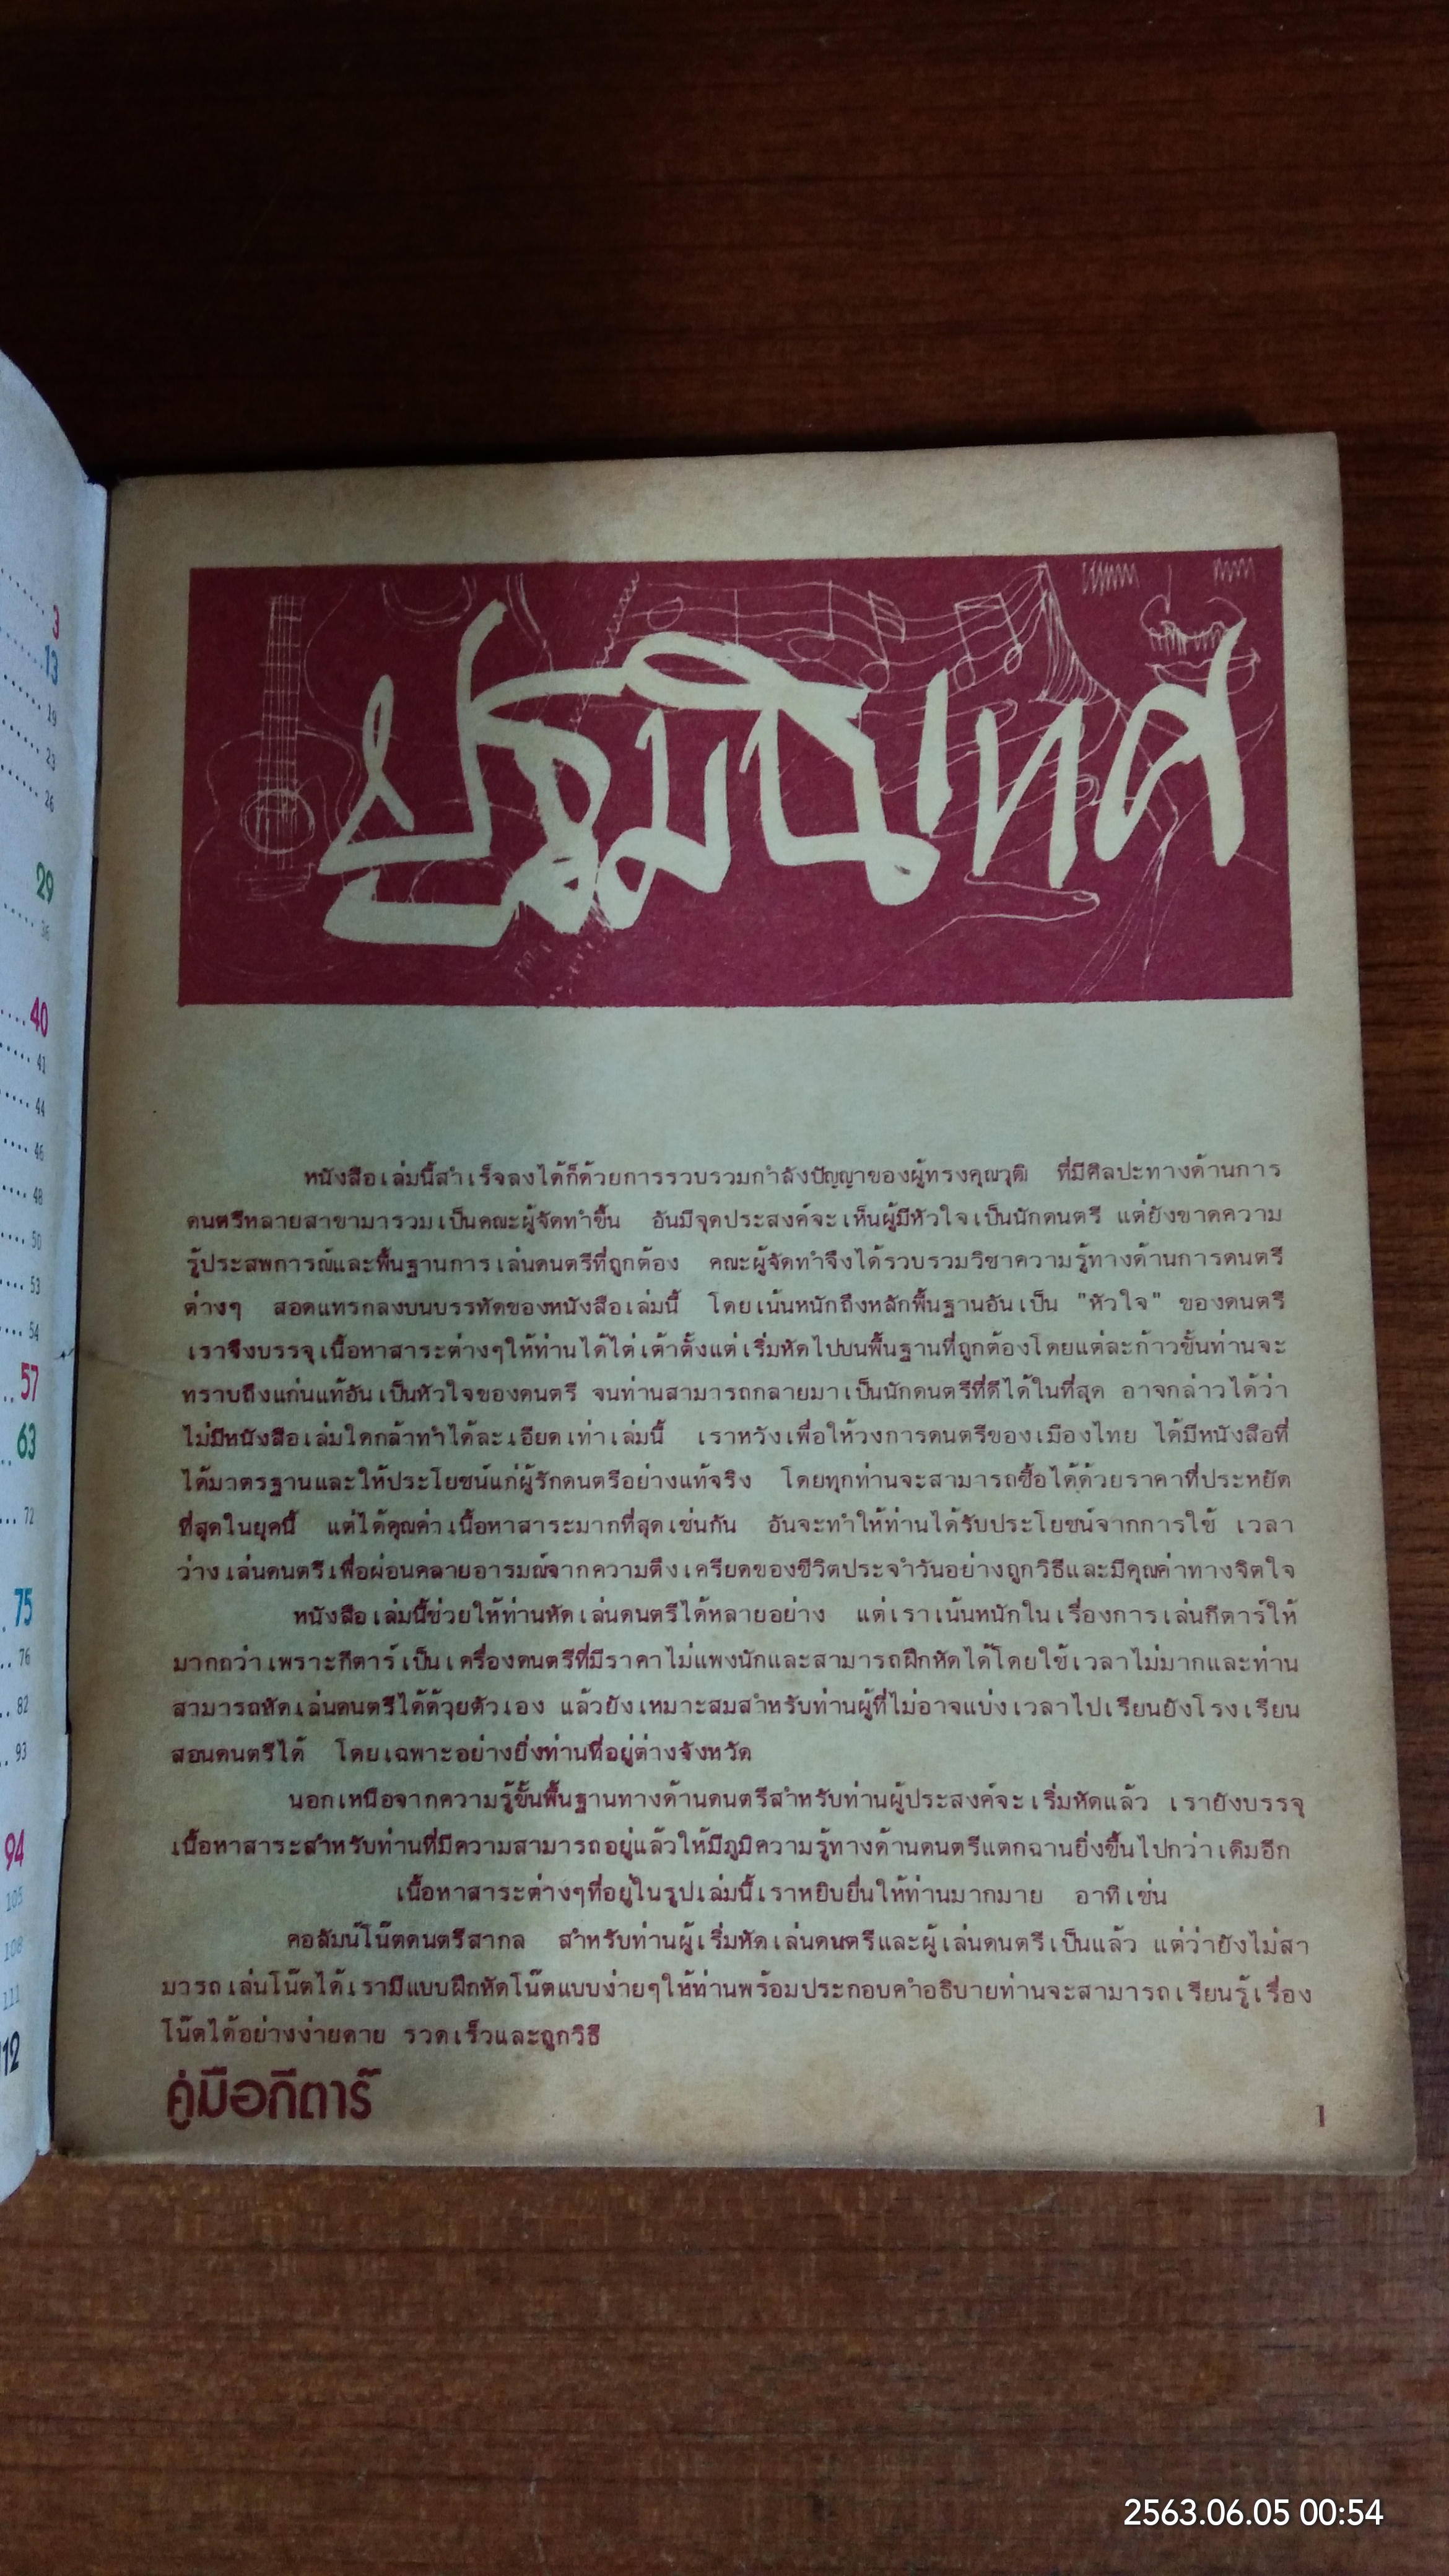 3
13
19
23
26
29
36
40
41
44
46
48
50
53
54
57
63
72
75
76
82
93
94
105
108
111
12
ปฐมนิเทศ
หนังสือเล่มนี้สำเร็จลงได้ก็ด้วยการรวบรวมกำลังปัญญาของผู้ทรงคุณวุฒิ ที่มีศิลปะทางด้านการ
ดนตรีหลายสาขามารวมเป็นคณะผู้จัดทำขึ้น อันมีจุดประสงค์จะเห็นผู้มีหัวใจเป็นนักดนตรี แต่ยังขาดความ
รู้ประสพการณ์และพื้นฐานการเล่นดนตรีที่ถูกต้อง คณะผู้จัดทำจึงได้รวบรวมวิชาความรู้ทางด้านการดนตรี
ต่างๆ สอดแทรกลงบนบรรทัดของหนังสือเล่มนี้ โดยเน้นหนักถึงหลักพื้นฐานอันเป็น "หัวใจ" ของดนตรี
เราจึงบรรจุเนื้อหาสาระต่างๆให้ท่านได้ไต่เต้าตั้งแต่เริ่มหัดไปบนพื้นฐานที่ถูกต้องโดยแต่ละก้าวขั้นท่านจะ
ทราบถึงแก่นแท้อันเป็นหัวใจของดนตรี จนท่านสามารถกลายมาเป็นนักดนตรีที่ดีได้ในที่สุด อาจกล่าวได้ว่า
ไม่มีหนังสือเล่มใดกล้าทำได้ละเอียดเท่าเล่มนี้ เราหวังเพื่อให้วงการดนตรีของเมืองไทย ได้มีหนังสือที่
ได้มาตรฐานและให้ประโยชน์แก่ผู้รักดนตรีอย่างแท้จริง โดยทุกท่านจะสามารถซื้อได้ด้วยราคาที่ประหยัด
ที่สุดในยุคนี้ แต่ได้คุณค่าเนื้อหาสาระมากที่สุดเช่นกัน อันจะทำให้ท่านได้รับประโยชน์จากการใช้ เวลา
ว่างเล่นดนตรีเพื่อผ่อนคลายอารมณ์จากความตึงเครียดของชีวิตประจำวันอย่างถูกวิธีและมีคุณค่าทางจิตใจ
หนังสือเล่มนี้ช่วยให้ท่านหัดเล่นดนตรีได้หลายอย่าง แต่เราเน้นหนักในเรื่องการเล่นกีตาร์ให้
มากกว่าเพราะกีตาร์เป็นเครื่องดนตรีที่มีราคาไม่แพงนักและสามารถฝึกหัดได้โดยใช้เวลาไม่มากและท่าน
สามารถหัดเล่นดนตรีได้ด้วยตัวเอง แล้วยังเหมาะสมสำหรับท่านผู้ที่ไม่อาจแบ่งเวลาไปเรียนยังโรงเรียน
สอนดนตรีได้ โดยเฉพาะอย่างยิ่งท่านที่อยู่ต่างจังหวัด
นอกเหนือจากความรู้ขั้นพื้นฐานทางด้านดนตรีสำหรับท่านผู้ประสงค์จะเริ่มหัดแล้ว เรายังบรรจุ
เนื้อหาสาระสำหรับท่านที่มีความสามารถอยู่แล้วให้มีภูมิความรู้ทางด้านดนตรีแตกฉานยิ่งขึ้นไปกว่าเดิมอีก
เนื้อหาสาระต่างๆที่อยู่ในรูปเล่มนี้เราหยิบยื่นให้ท่านมากมาย อาทิเช่น
คอลัมน์โน๊ตดนตรีสากล สำหรับท่านผู้เริ่มหัดเล่นดนตรีและผู้เล่นดนตรีเป็นแล้ว แต่ว่ายังไม่สา
มารถเล่นโน๊ตได้เรามีแบบฝึกหัดโน๊ตแบบง่ายๆให้ท่านพร้อมประกอบคำอธิบายท่านจะสามารถเรียนรู้เรื่อง
โน๊ตได้อย่างง่ายดาย รวดเร็วและถูกวิธี
คู่มือกีตาร์
1
2563.06.05 00:54